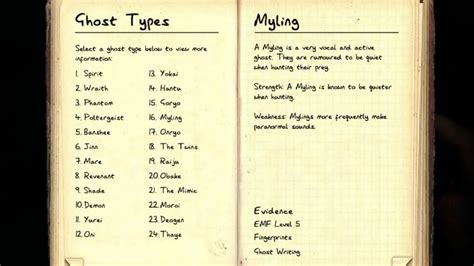 Ghost Types
Select a ghost type below to view more
information:
1. Spirit
2. Wraith
3. Phantom
4. Poltergeist
5. Banshee
6. Jinn
7. Mare
8. Revenant
9. Shade
10. Demon
11. Yurei
12. Oni
13. Yokai
14. Hantu
15. Goryo
16. Myling
17. Onryo
18. The Twins
19. Raiju
20. Obake
21. The Mimic
22. Moroi
23. Deogen
24. Thaye
Myling
A Myling is a very vocal and active
ghost. They are rumoured to be quiet
when hunting their prey.
Strength: A Myling is known to be quieter
when hunting.
Weakness: Mylings more frequently make
paranormal sounds.
Evidence
EMF Level 5
Fingerprints
Ghost Writing